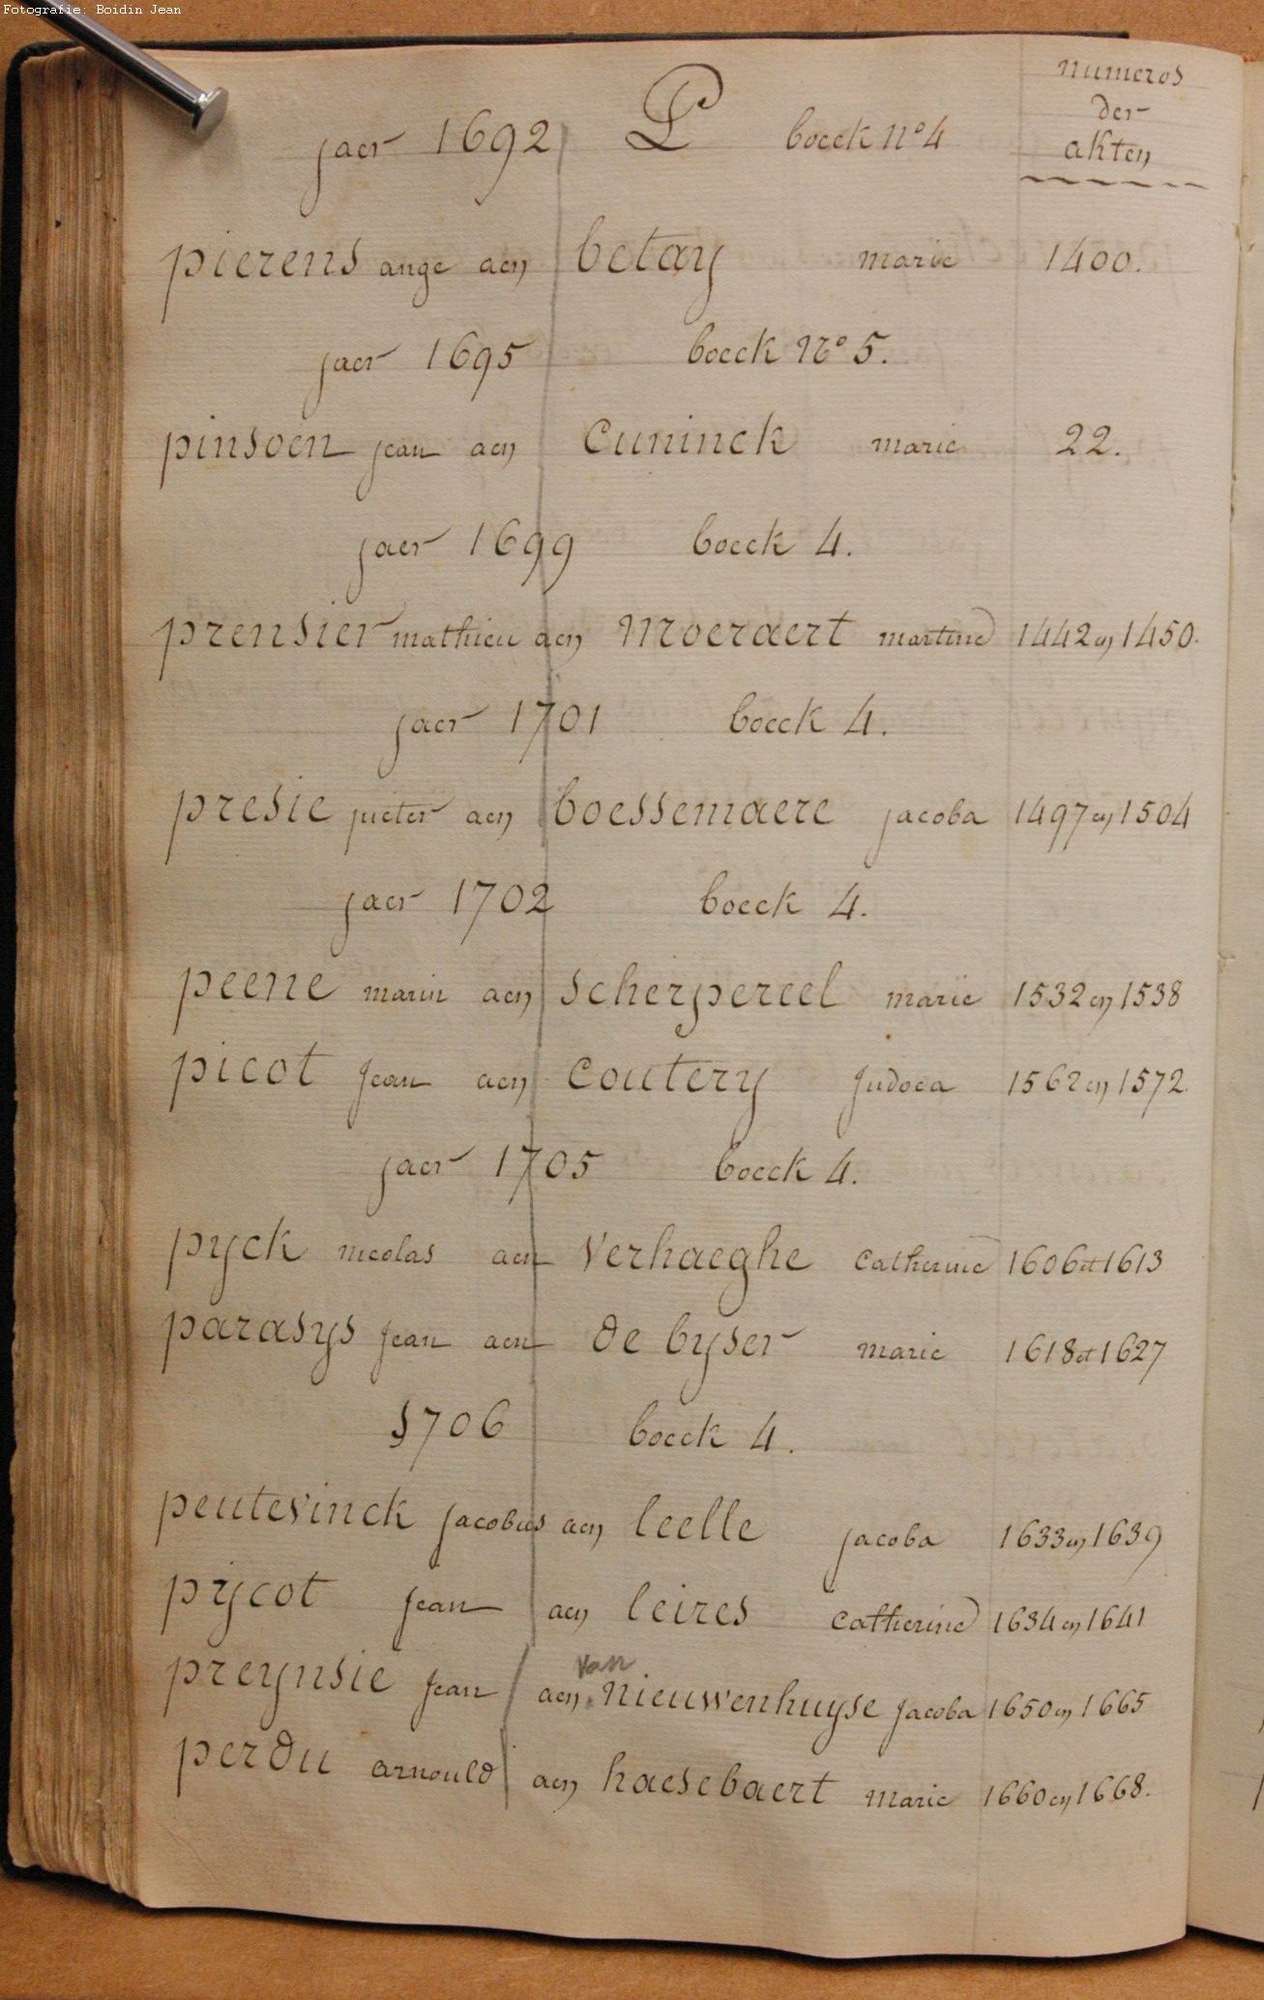 Fotografie: Boidin Jean
numeros
der
akten
jaer 1692 P boeck n° 4
pierens ange aen betay marie 1400.
jaer 1695 boeck N° 5.
pinsoen jean aen Cuninck marie 22.
jaer 1699 boeck 4.
prensier mathieu aen Moeraert martine 1442 en 1450.
jaer 1701 boeck 4.
presie pieter aen boessemaere jacoba 1497 en 1504
jaer 1702 boeck 4.
peene marin aen scherpereel marie 1532 en 1538
picot jean aen Coutery judoca 1562 en 1572.
jaer 1705 boeck 4.
pyck nicolas aen verhaeghe Catherine 1606 et 1613
parasys jean aen de byser marie 1618 et 1627
1706 boeck 4.
peutevinck jacobus aen leelle jacoba 1633 en 1639
pycot jean aen leires Catherine 1634 en 1641
van
preynsie jean aen nieuwenhuyse jacoba 1650 en 1665
perdu arnould aen haesebaert marie 1660 en 1668.